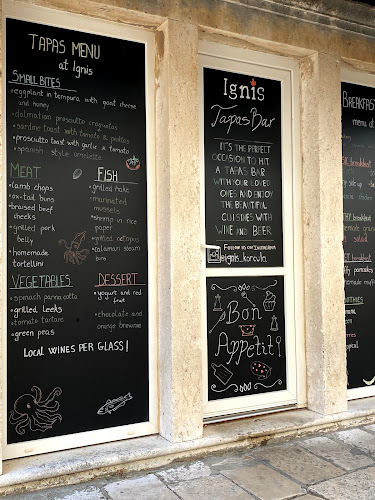 TAPAS MENU
at Ignis
SMALL BITES
eggplant in tempura with goat cheese
and honey
dalmatian prosciutto croquetas
sardine toast with tomato & pickles
prosciutto toast with garlic & tomato
spanish style omlette
MEAT
lamb chops
ox-tail buns
braised beef
cheeks
grilled pork
belly
homemade
tortellini
FISH
grilled hake
marinated
mussels
shrimp in rice
paper
grilled octopus
calamari steam
bun
VEGETABLES
spinach panna cotta
grilled leeks
tomato tartare
green peas
DESSERT
yogurt and red
fruit
chocolate and
orange brownie
LOCAL WINES PER GLASS!
Ignis
Tapas Bar
IT'S THE PERFECT
OCCASION TO HIT
A TAPAS BAR
WITH YOUR LOVED
ONES AND ENJOY
THE BEAUTIFUL
CUISINES WITH
WINE AND BEER
FOLLOW US ON INSTAGRAM
@ignis_korcula
Bon
Appetit!
BREAKFAST
menu at